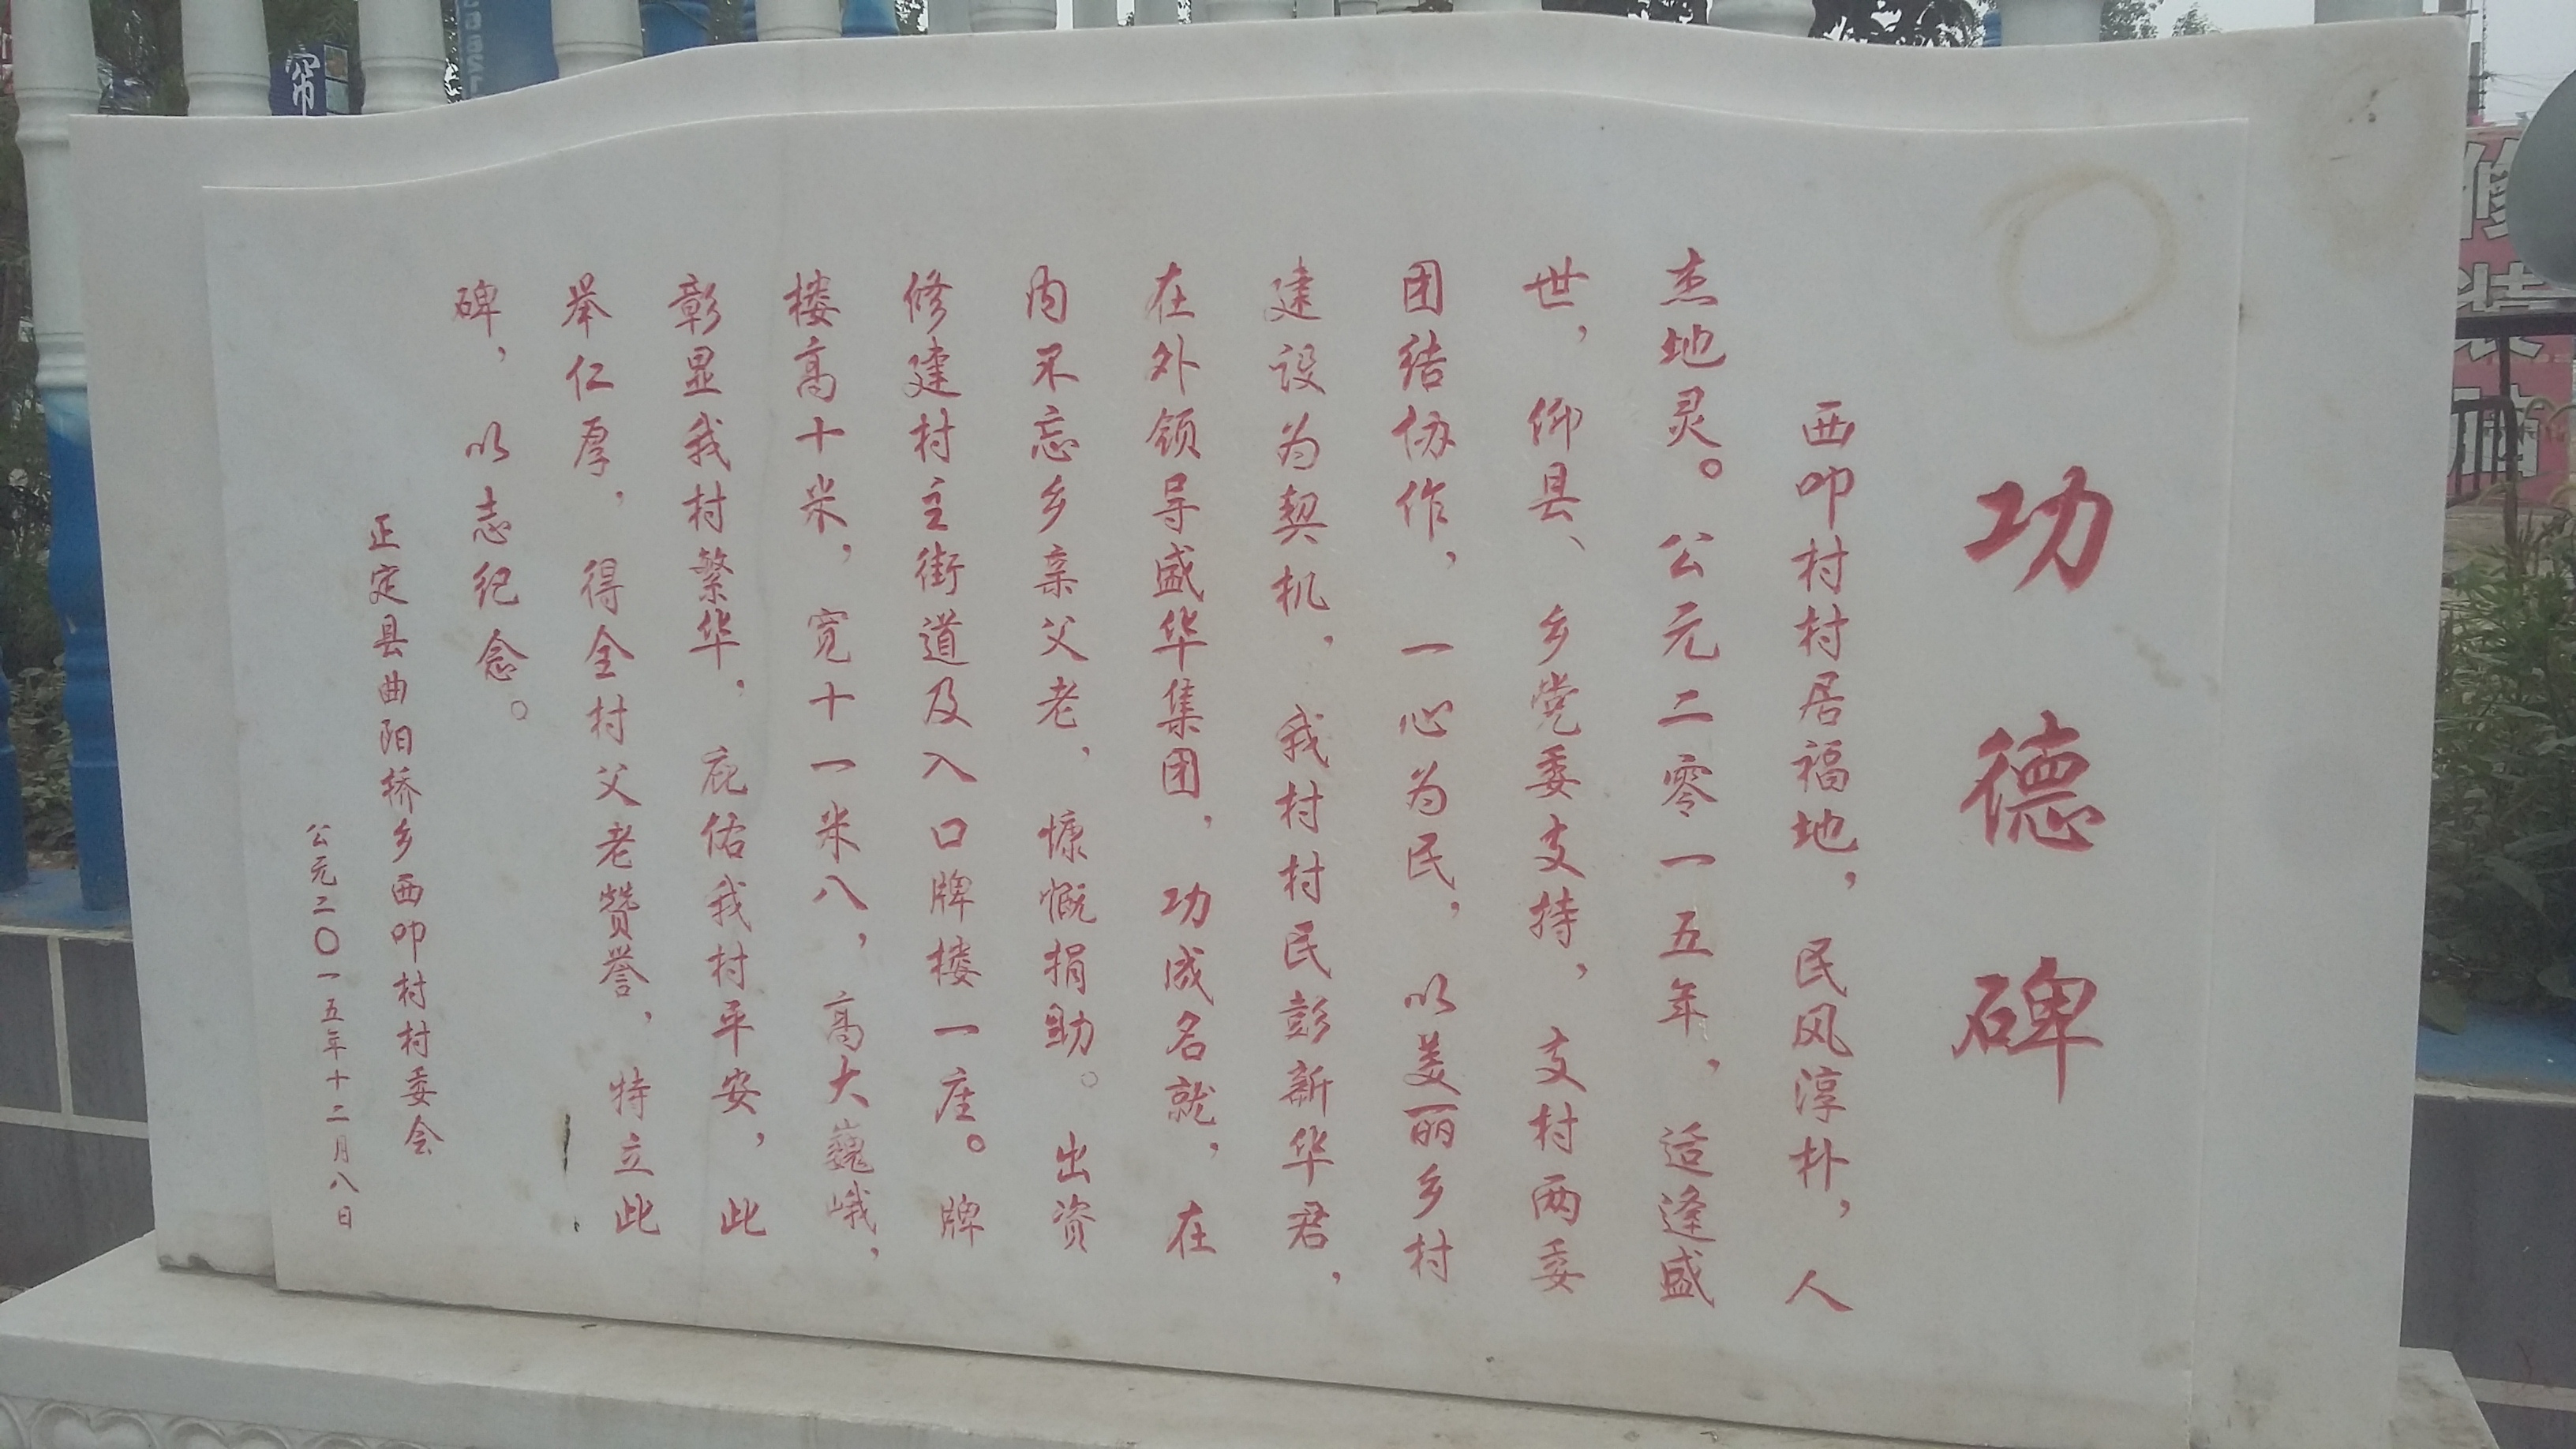 功德碑
西叩村村居福地，民风淳朴，人
杰地灵。公元二零一五年，适逢盛
世，仰县、乡党委支持，支村两委
团结协作，一心为民，以美丽乡村
建设为契机，我村村民彭新华君，
在外领导盛华集团，功成名就，在
内不忘乡亲父老，慷慨捐助。出资
修建村主街道及入口牌楼一座。牌
楼高十米，宽十一米八，高大巍峨，
彰显我村繁华，庇佑我村平安，此
举仁厚，得全村父老赞誉，特立此
碑，以志纪念。
正定县曲阳桥乡西叩村村委会
公元二〇一五年十二月八日
帘
修
装